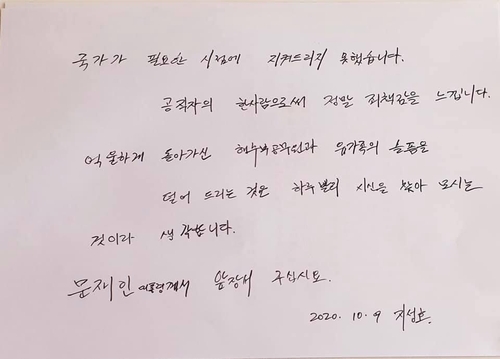 국가가 필요한 시점에 지켜드리지 못했습니다.
공직자의 한사람으로써 정말 죄책감을 느낍니다.
억울하게 돌아가신 해수부공무원과 유가족의 슬픔을
덜어 드리는 것은 하루빨리 시신을 찾아 모시는
것이라 생각합니다.
문재인 대통령께서 앞장서 주십시오.
2020. 10. 9 지성호